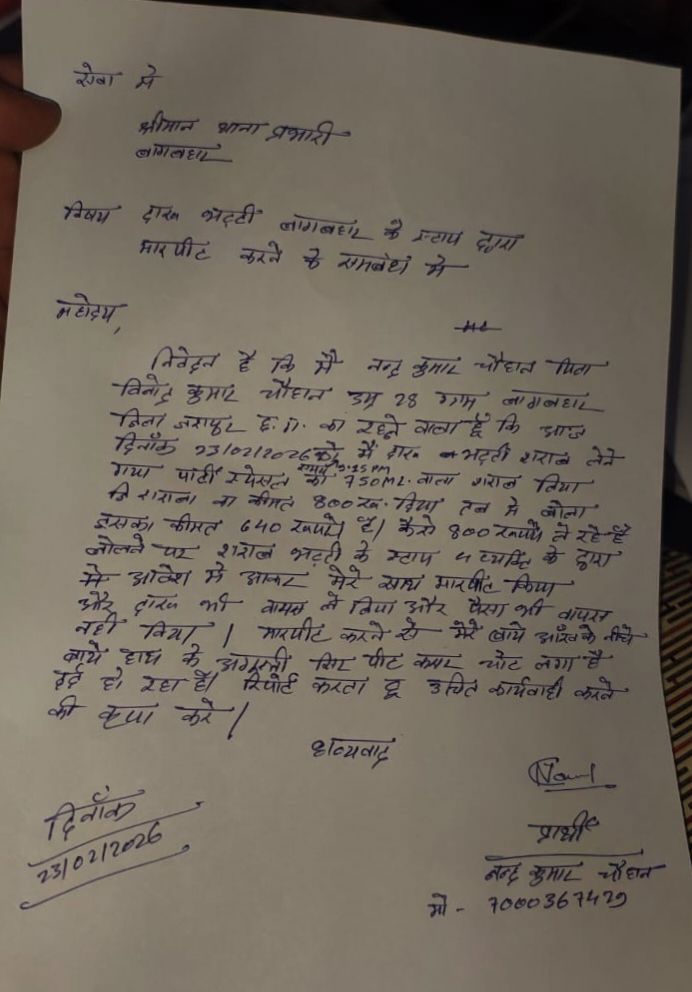 सेवा मे
श्रीमान थाना प्रभारी
बागबहार
विषय दारू भट्टी बागबहार के स्टाप द्वारा
मारपीट करने के समबंध मे
महोदय,
निवेदन है कि मै नन्द कुमार चौहान पिता
विनोद कुमार चौहान उम्र 28 ग्राम बागबहार
जिला जशपुर छ.ग. का रहने वाला हूँ कि आज
दिनाँक 23/02/2026 को मैं दारू भट्टी शराब लेने
समय 3:25 PM
गया पार्टी स्पेसल का 750ML. वाला शराब लिया
जि शराब का कीमत 800 रू. लिया तब मे बोला
इसका कीमत 640 रूपये है। कैसे 800 रूपये ले रहे है
बोलने पर शराब भट्टी के स्टाप 4 व्यक्ति के द्वारा
मे आवेश मे आकर मेरे साथ मारपीट किया
और दारू भी वापस ले लिया और पैसा भी वापस
नही दिया। मारपीट करने से मेरे बांये आँख के नीचे
बाये हाथ के अंगुली सिर पीट कमर चोट लगा है
दर्द हो रहा है। रिपोर्ट करता हू उचित कार्यवाही करने
की कृपा करे।
धन्यवाद
दिनाँक
23/02/2026
प्रार्थी
नन्द कुमार चौहान
मो - 7000367429